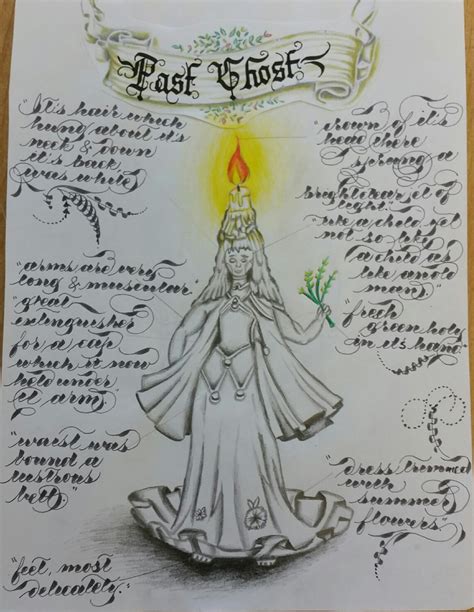 Past Ghost
"It's hair which
hung about it's
neck & down
it's back
was white"
"arms are very
long & muscular"
"great
extinguisher
for a cap
which it now
held under
it arm."
"waist was
bound a
lustrous
belt"
"feet, most
delicately."
"crown of it's
head there
sprang a
bright clear jet of
light"
"like a child, yet
not so like
a child as
like an old
man."
"fresh
green holy
in it's hand"
"dress trimmed
with
summer
flowers"